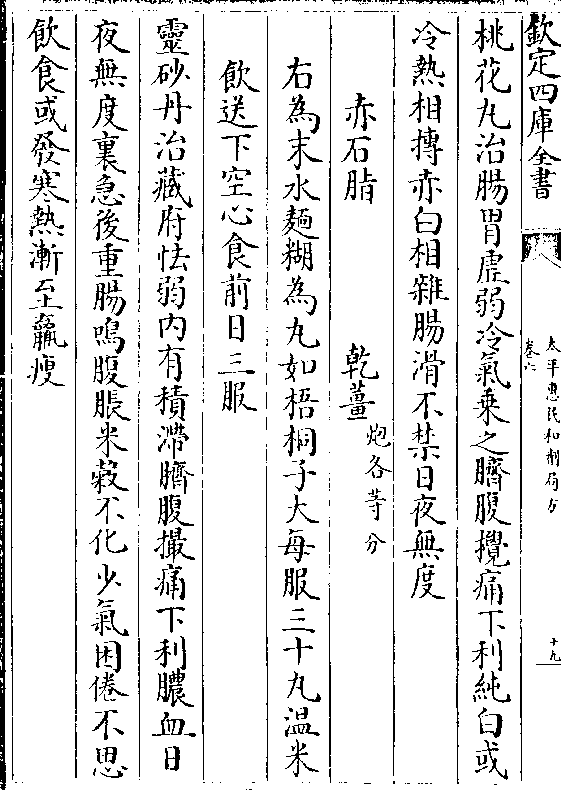 欽定四庫全書
太平惠民和劑局方
卷六
十九
桃花丸治腸胃虛弱冷氣乗之臍腹攪痛下利純白或
冷熱相搏赤白相雜腸滑不禁日夜無度
赤石脂 乾薑炮各等分
右為末水麵糊為丸如梧桐子大每服三十丸温米
飲送下空心食前日三服
靈砂丹治藏府怯弱内有積滯臍腹撮痛下利膿血日
夜無度裏急後重腸鳴腹脹米穀不化少氣困倦不思
飲食或發寒熱漸至羸瘦